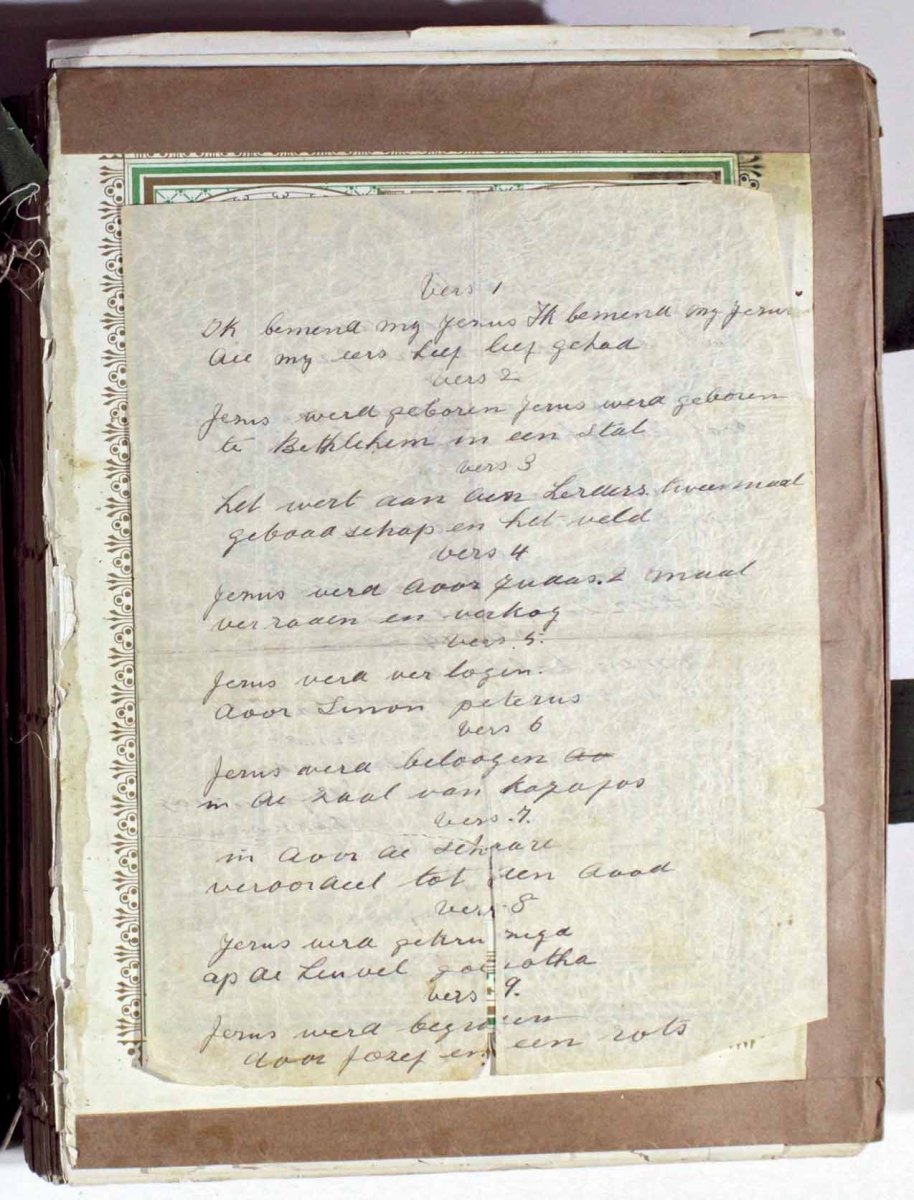 Vers 1
Ik bemend my Jesus Ik bemend my Jesus
die my eers heef lief gehad
vers 2
Jesus werd geboren Jesus werd geboren
te Bethlehem in een stal
vers 3
het wert aan den herders twee maal
gebood schap en het veld
vers 4
Jesus werd door Judas. 2 maal
verraden en verkog
vers. 5.
Jesus werd verlogin.
door Simon peterus
vers 6
Jesus werd beloogen
in de zaal van kazafas
vers. 7.
in door de schaare
veroordeel tot den dood
vers 8
Jesus werd gekruisiga
op de heuvel golgotha
vers 9.
Jesus werd begraven
door Jozef en een rots